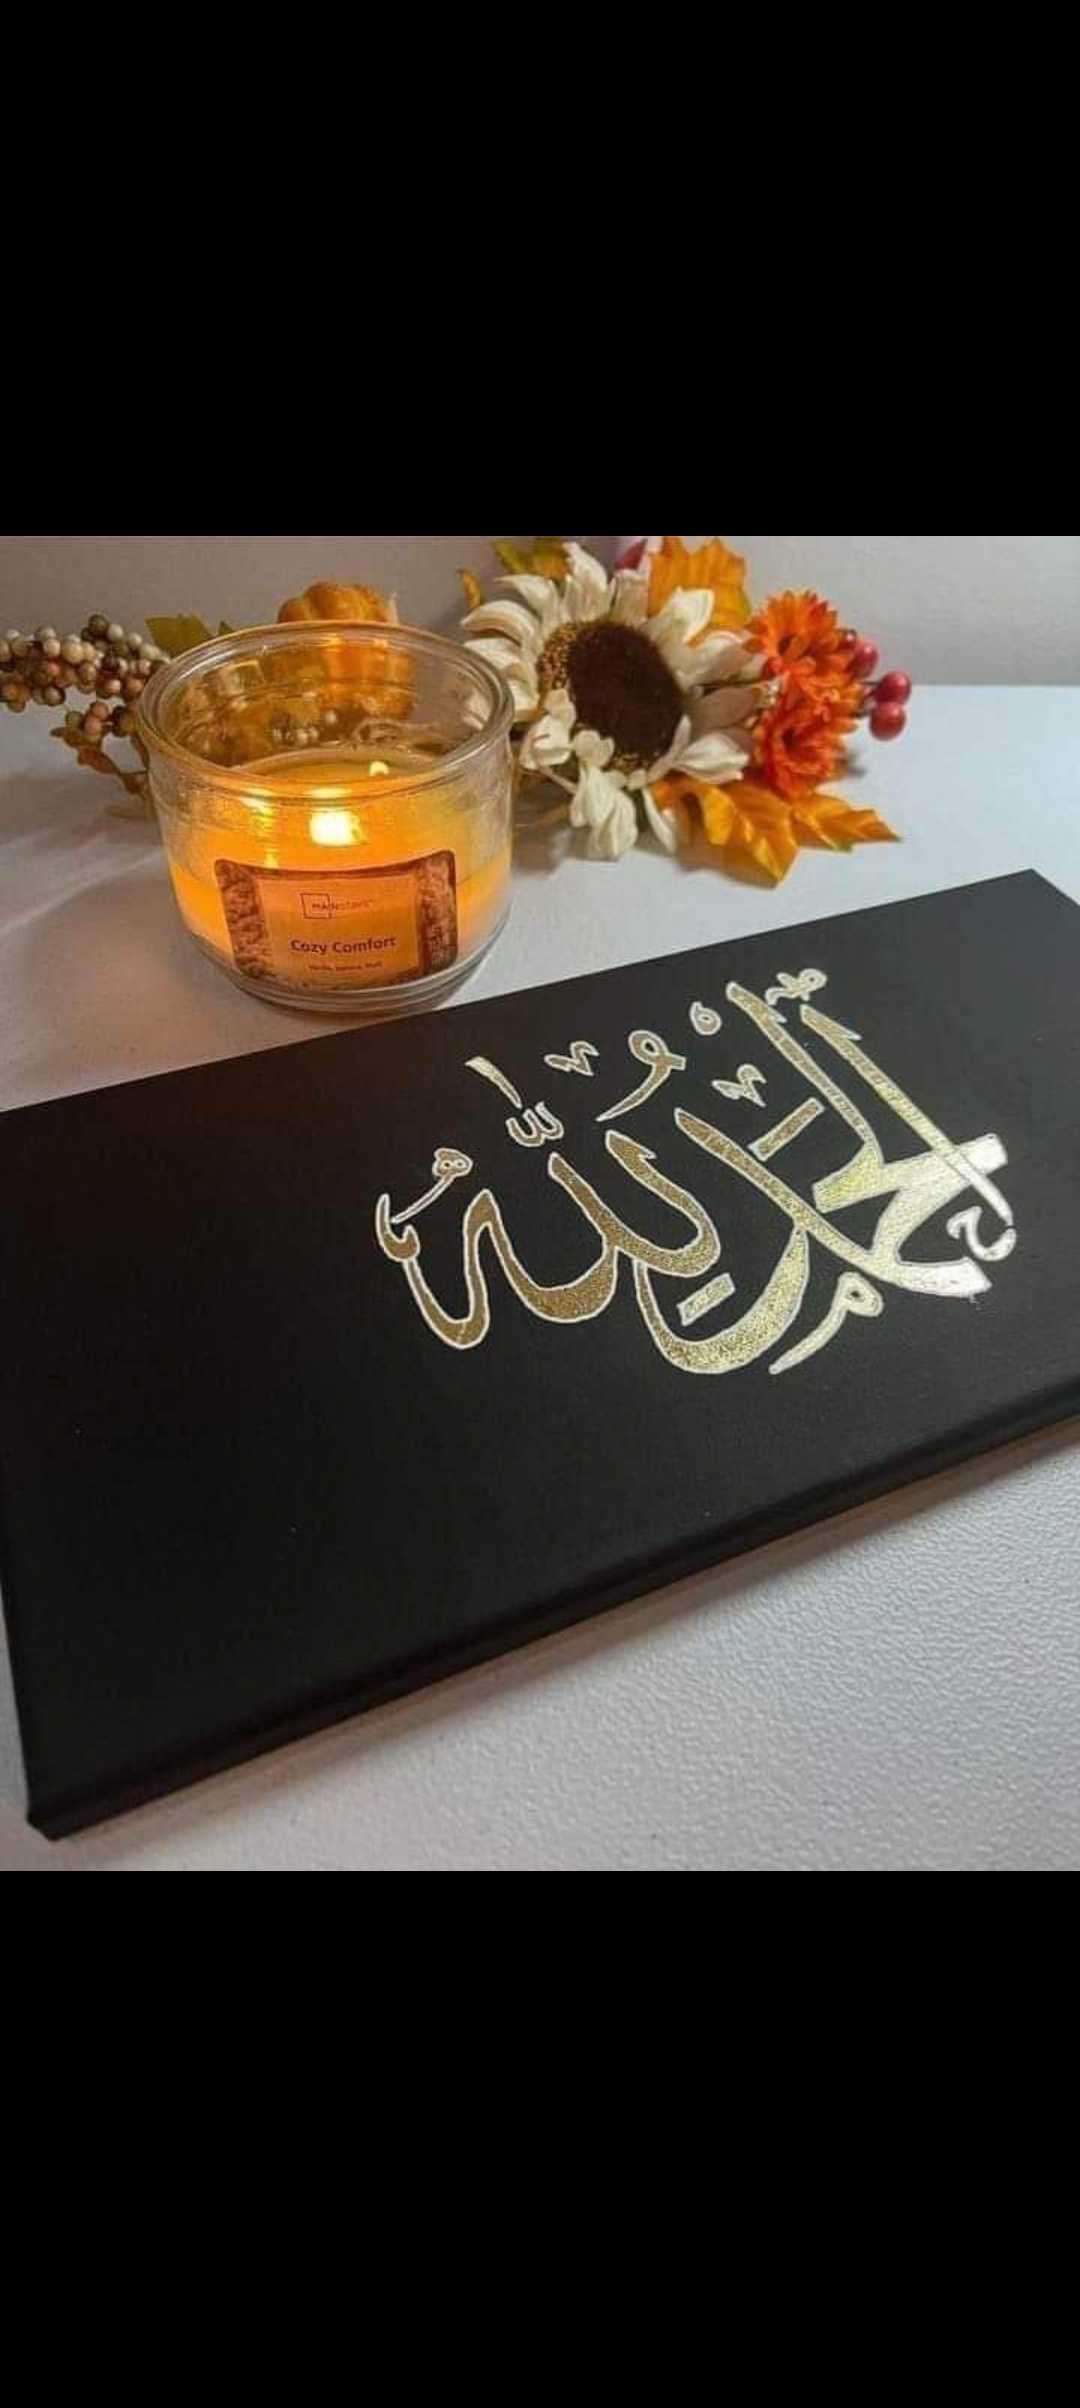 MAINSTAYS
Cozy Comfort
الحمد لله